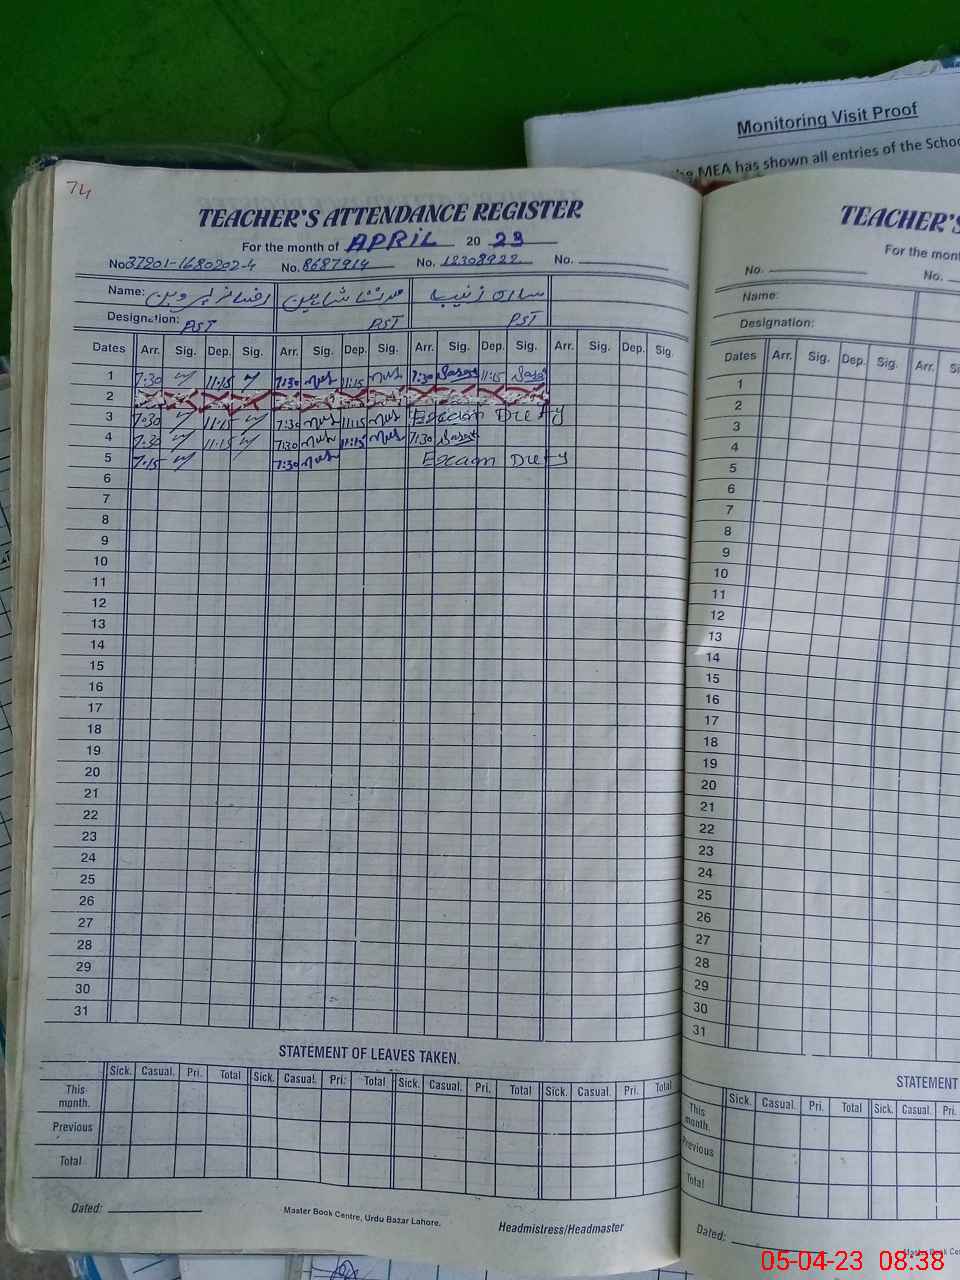 Monitoring Visit Proof
MEA has shown all entries of the Schoo
74
TEACHER'S ATTENDANCE REGISTER
For the month of APRIL 20 23
No 37201-1680202-4 No. 8687914 No. 12308922 No.
Name: رضانہ پروین سارہ زینب
Designation: PST PST PST
Dates Arr. Sig. Dep. Sig. Arr. Sig. Dep. Sig. Arr. Sig. Dep. Sig. Arr. Sig. Dep. Sig.
1 7:30 11:15 7:30 11:15 7:30 11:15
2
3 7:30 11:15 7:30 11:15 Exam Duty
4 7:30 11:15 7:30 11:15 7:30
5 7:15 7:30 Exam Duty
6
7
8
9
10
11
12
13
14
15
16
17
18
19
20
21
22
23
24
25
26
27
28
29
30
31
STATEMENT OF LEAVES TAKEN.
Sick. Casual. Pri. Total Sick. Casual. Pri. Total Sick. Casual. Pri. Total Sick. Casual. Pri. Total
This month.
Previous
Total
Dated:
Master Book Centre, Urdu Bazar Lahore.
Headmistress/Headmaster
TEACHER'S
For the mont
No. No.
Name:
Designation:
Dates Arr. Sig. Dep. Sig. Arr. Si
1
2
3
4
5
6
7
8
9
10
11
12
13
14
15
16
17
18
19
20
21
22
23
24
25
26
27
28
29
30
31
STATEMENT
Sick. Casual. Pri. Total Sick. Casual. Pri.
This month.
Previous
Total
Dated:
Master Book Ce
05-04-23 08:38